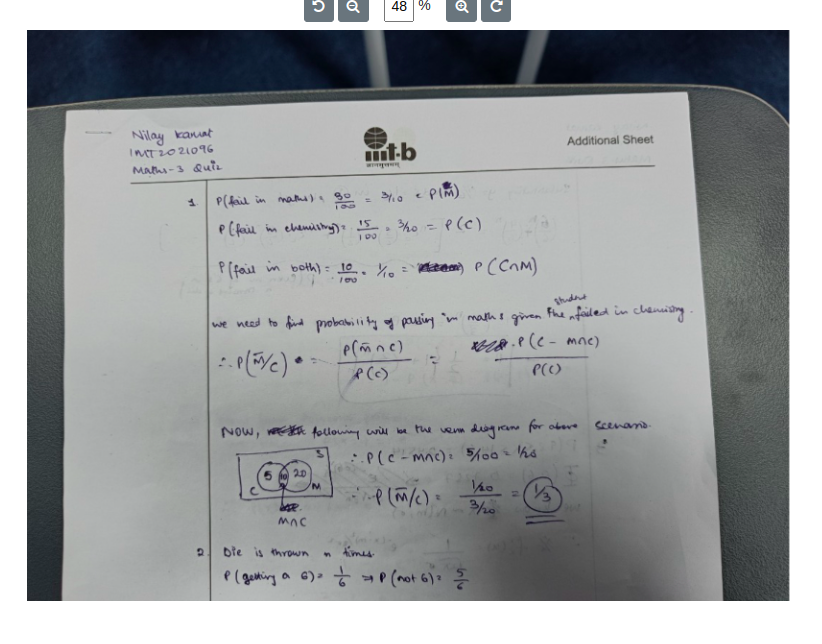 48 %
Nilay Kamat
IMT2021096
Maths-3 Quiz
iiit-b
ज्ञानमुत्तमम्
Additional Sheet
1 P(fail in maths) = 30/100 = 3/10 = P(M)
P(fail in chemistry) = 15/100 = 3/20 = P(C)
P(fail in both) = 10/100 = 1/10 = P(C∩M)
we need to find probability of passing in maths given the student failed in chemistry.
∴ P(M̅/C) = P(M̅∩C)/P(C) = P(C - M∩C)/P(C)
NOW, following will be the venn diagram for above scenario.
S
5 10 20
C M
M∩C
∴ P(C - M∩C) = 5/100 = 1/20
∴ P(M̅/C) = 1/20 / 3/20 = 1/3
2. Die is thrown n times.
P(getting a 6) = 1/6 ⇒ P(not 6) = 5/6